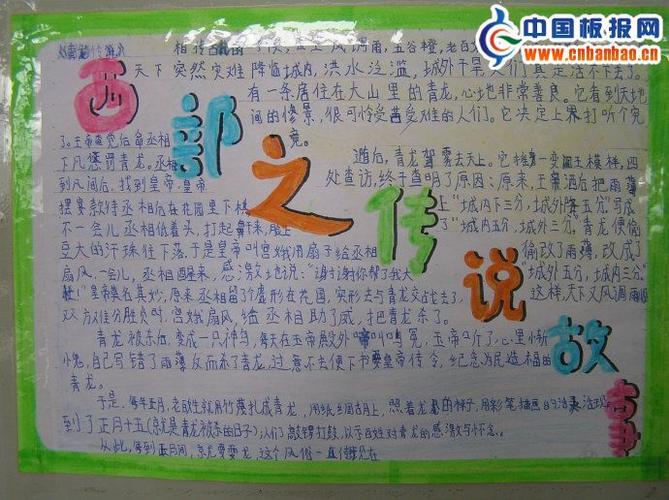 中国板报网
www.cnbanbao.cn
西部之传说故事
天下突然灾难降临城内,洪水泛滥,城外干旱,人们真是活不下去了。
有一条居住在大山里的青龙,心地非常善良。它看到天地
间的惨景,很可怜受苦受难的人们。它决定上界打听个究
竟。
了。王帝查觉后命丞相
下凡惩罚青龙。丞相
到凡间后,找到皇帝,皇帝
摆宴款待丞相后在花园里下棋
不一会儿丞相低着头,打起鼾来,脸上
豆大的汗珠往下落,于是皇帝叫宫娥用扇子给丞相
扇风,一会儿,丞相醒来,感激地说:“谢谢你帮了我大
忙!”皇帝莫名其妙,原来丞相留了个虚形在花园,实形去与青龙交战去了
双方难分胜负时宫娥扇风给丞相助了威,把青龙杀了。
随后,青龙驾雾去天上。它摇身一变阎王模样,四
处查访,终于查明了原因:原来,王帝酒后把雨薄
上“城内下三分,城外降五分”写成
了“城内五分,城外三分”青龙便偷
偷改了雨薄,改成了
“城外五分,城内三分”
这样,天下又风调雨顺
青龙被杀后,变成一只神鸟,每天在玉帝殿
小鬼,自己写错了雨薄反而杀了青龙,过意不去便下书要皇帝传令,纪念为民造福的
青龙。
于是,每年正月,老百姓就用竹篾扎成青龙,用纸
到了正月十五(就是青龙被杀的日子)人们敲锣打鼓,以示百姓对青龙的感激与怀念。
从此,每到正月间,就龙,这个风俗一直传